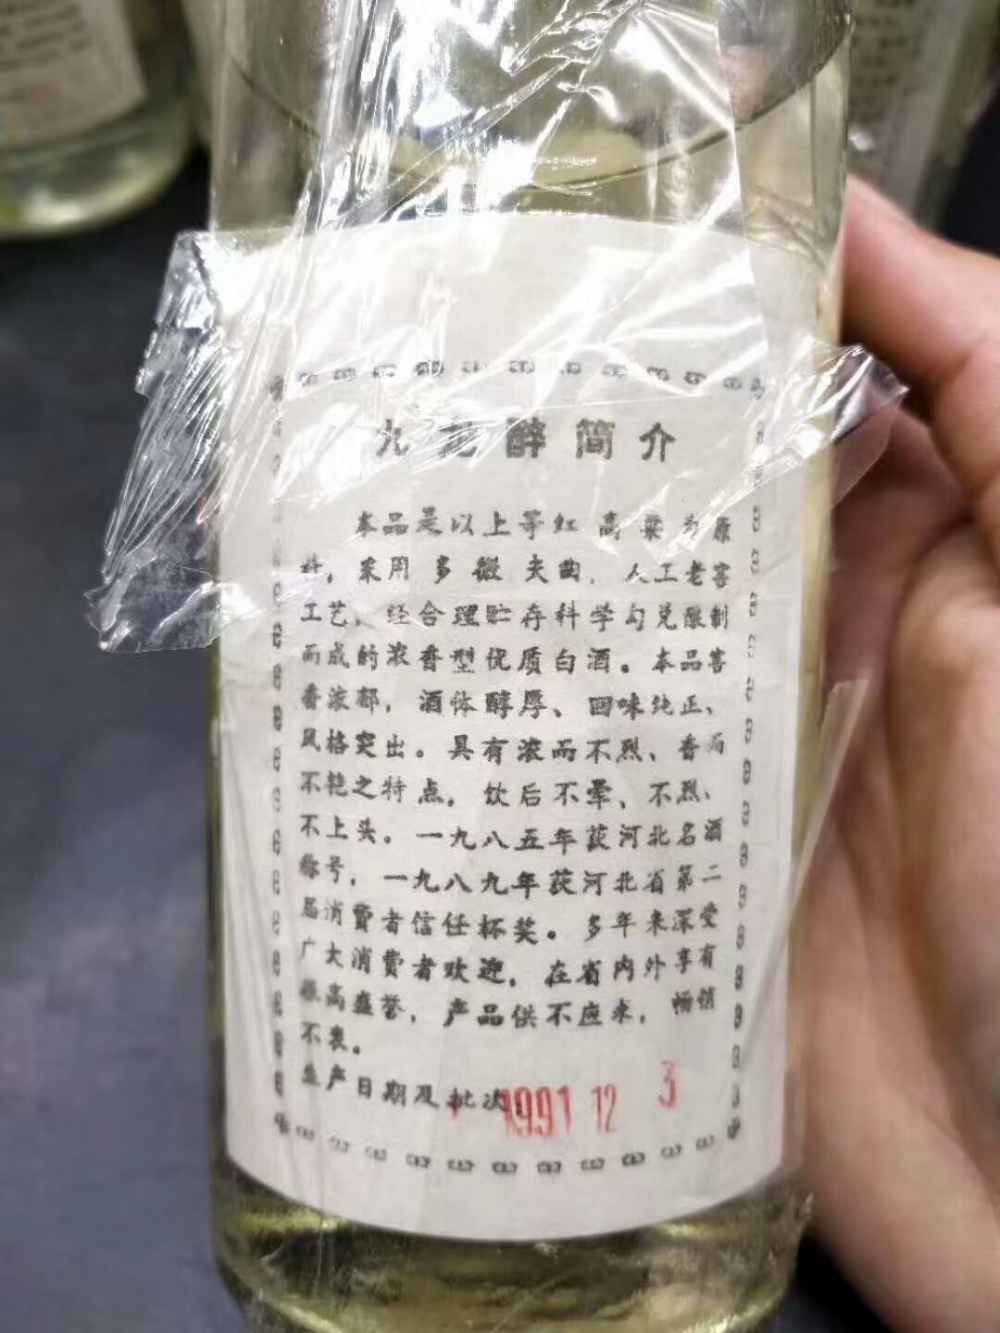 九龙醉简介
本品是以上等红高粱为原
料，采用多微夹曲，人工老窖
工艺，经合理贮存科学勾兑酿制
而成的浓香型优质白酒。本品窖
香浓郁，酒体醇厚、回味纯正、
风格突出。具有浓而不烈、香而
不艳之特点，饮后不晕、不烈、
不上头。一九八五年获河北名酒
称号，一九八九年获河北省第二
届消费者信任杯奖。多年来深受
广大消费者欢迎，在省内外享有
很高盛誉，产品供不应求，畅销
不衰。
生产日期及批次：1991 12 3